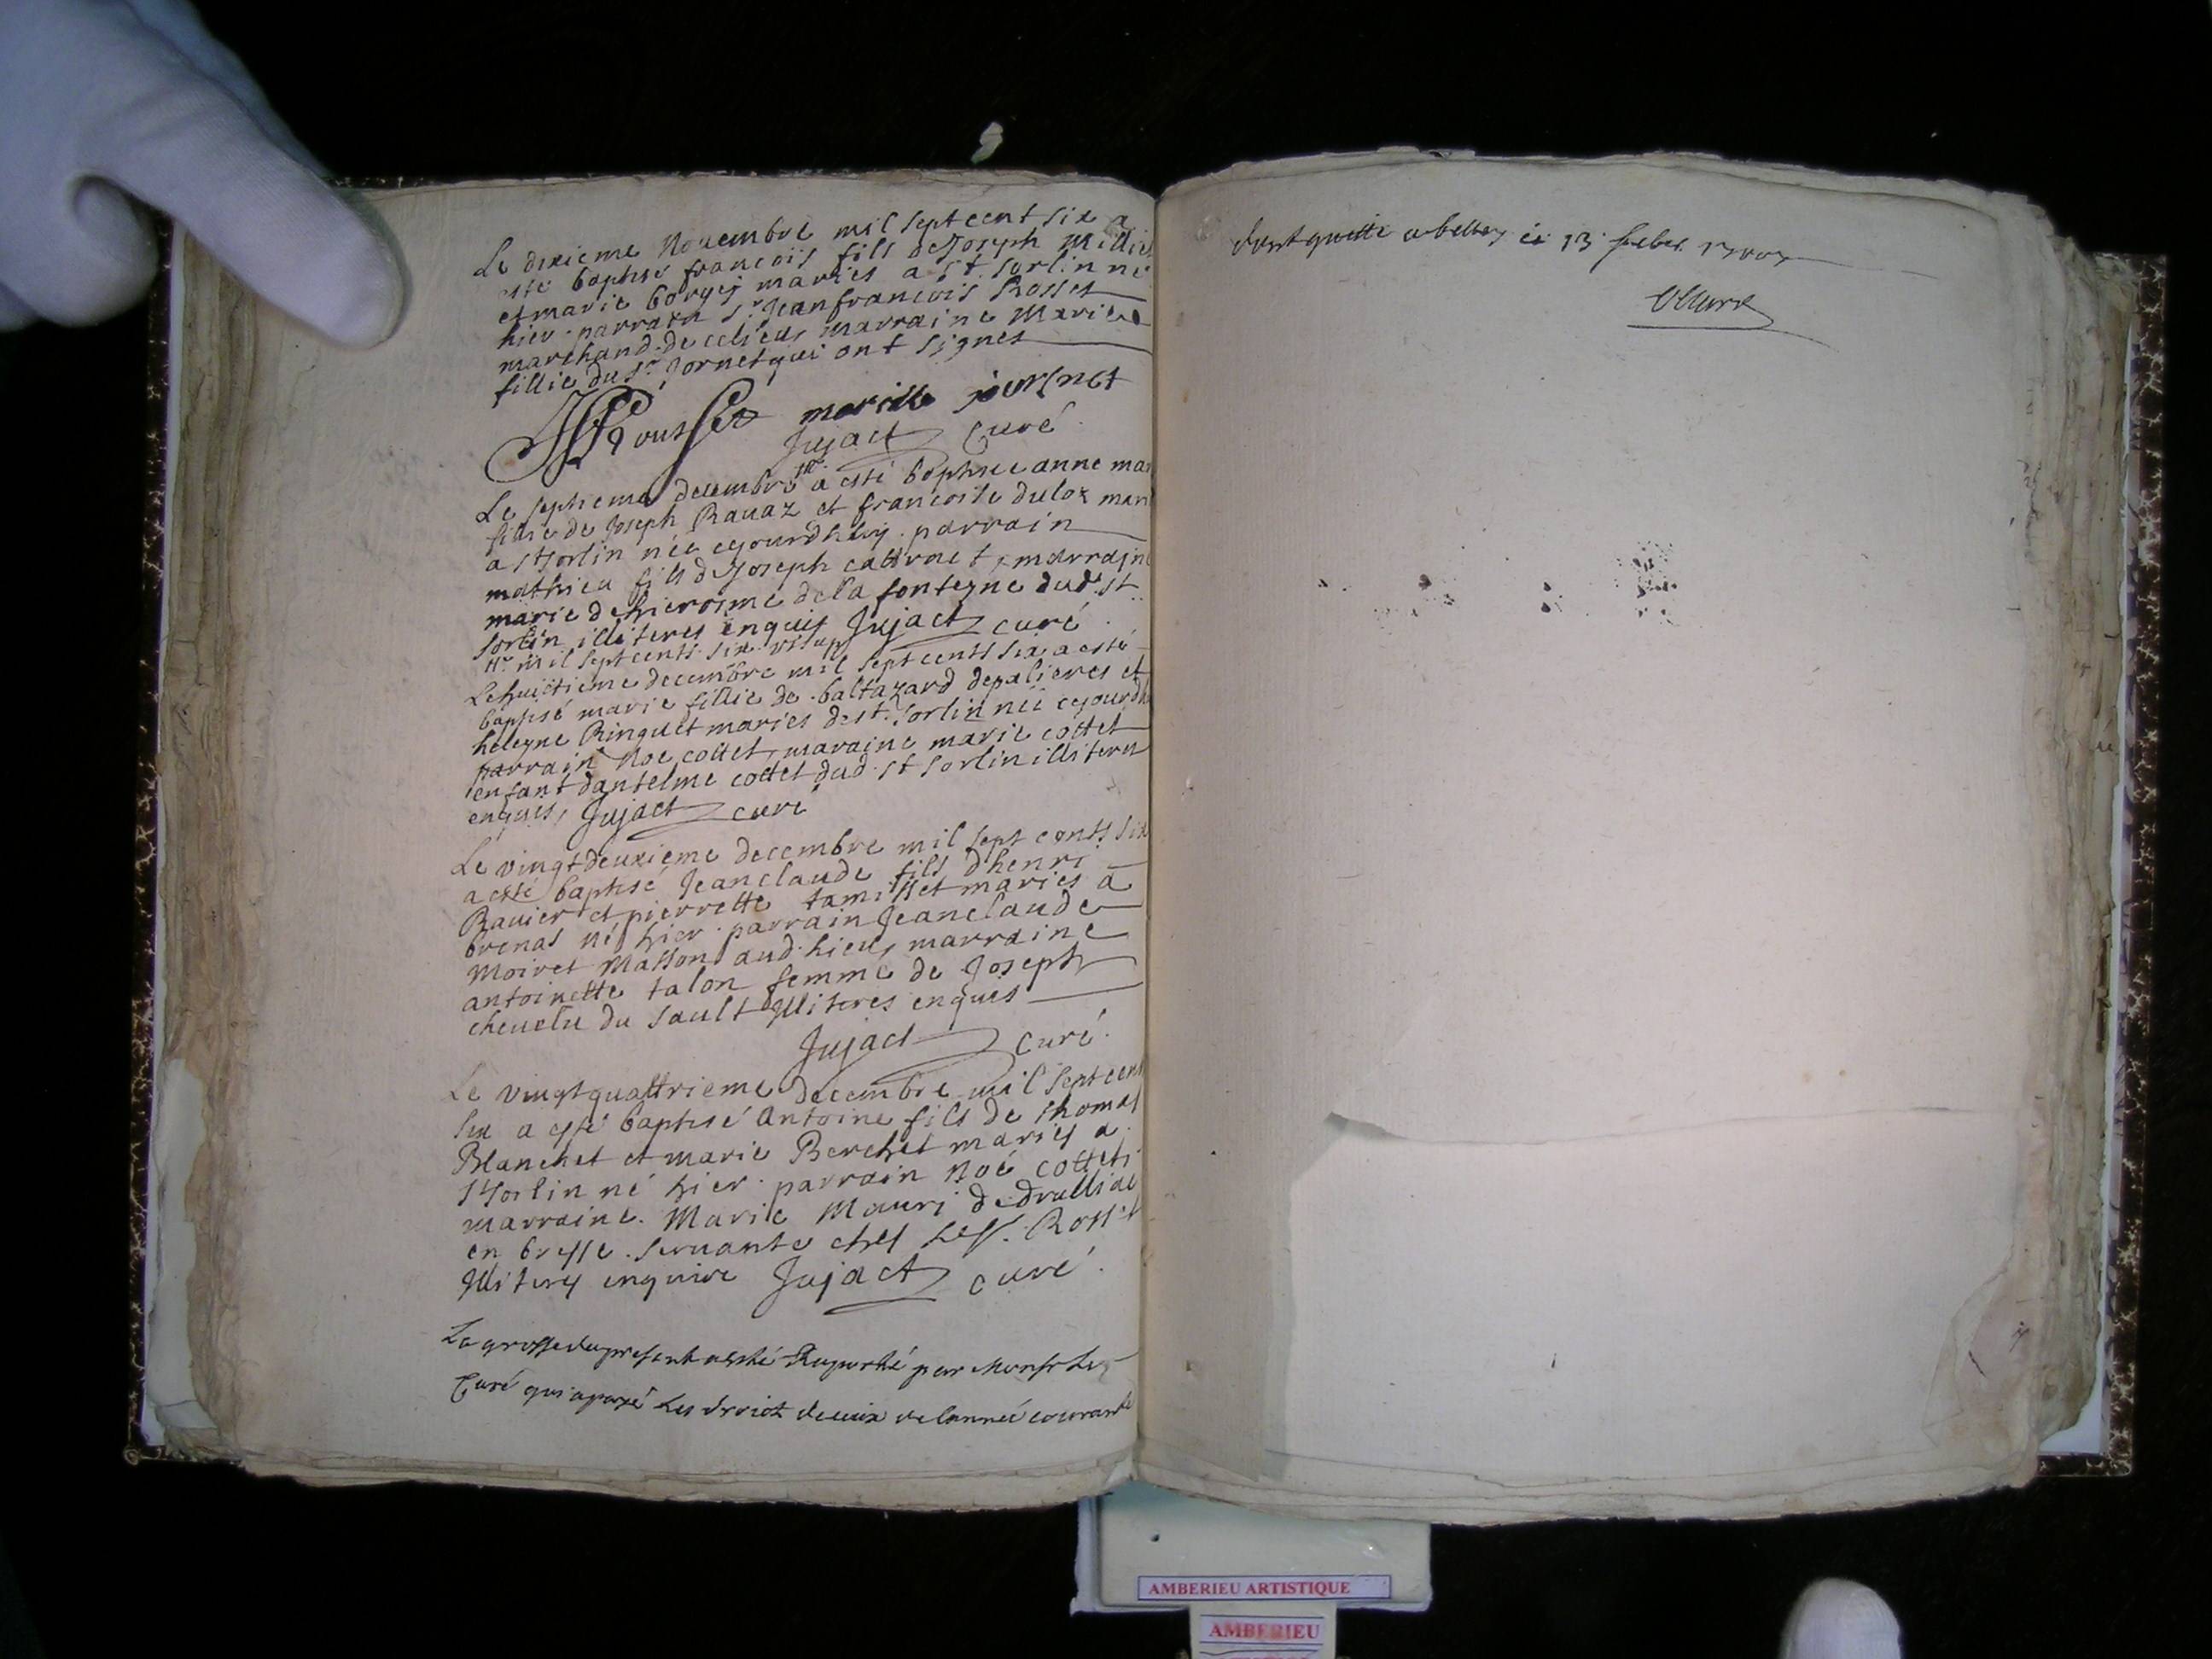 Le dixieme Nouembre mil sept cent six a
esté baptisé francois fils de Joseph Millie
et marie borges mariés a st. sorlin né
hier. parrain sr. Jeanfrancois Rosset
marchand de ce lieu, marraine Marie
fillie du sr. Jornet qui ont signes
JFRousset marie jornet
Jujact Curé
Le septieme decembre a esté baptisee anne mar
fillie de Joseph Rauaz et francoise duloz mari
a st sorlin née cejourdhuy. parrain
mathieu fils de Joseph marrajne
marie de hierosme de la fonteyne dud. st.
sorlin illiteres enquis Jujact curé
mil sept cents six
Le huictieme decembre mil sept cents six a esté
baptisé marie fillie de baltazard depalieres et
heleyne Ringuet maries de st. sorlin née cejourdh
parrain Noe cottet, maraine marie cottet
enfant dantelme cottet dud. st sorlin illiteres
enquis, Jujact curé
Le vingtdeuxieme decembre mil sept cents six
a esté baptisé Jeanclaude fils dhenri
Rauier et pierrette tamisset mariés a
brenas né hier. parrain Jeanclaude
Moiret Masson aud. lieu, marraine
antoinette talon femme de Joseph
cheuelu du sault Illiteres enquis
Jujact Curé.
Le vingtquattrieme Decembre mil sept cent
six a esté baptisé Antoine fils de thomas
Blanchet et marie Berchet mariés a
st sorlin né hier. parrain Noé cottet,
marraine. Marie Mauri de
en bresse. seruante ches le sr. Rosset
Illiterés enquire Jujact curé.
La grosse du present a esté Raporté par Monsr Le
Curé qui a payé Les droict deceux de lannée courante
dont quitte a belley ce 13. feber. 1707